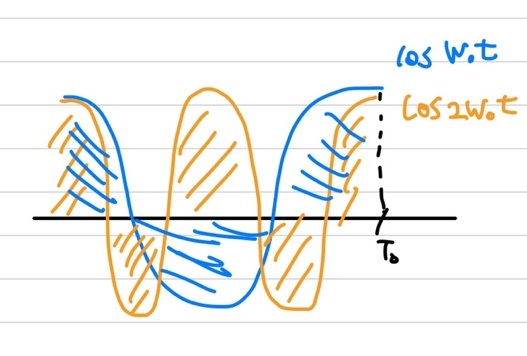 cos ω₀t
cos 2ω₀t
T₀